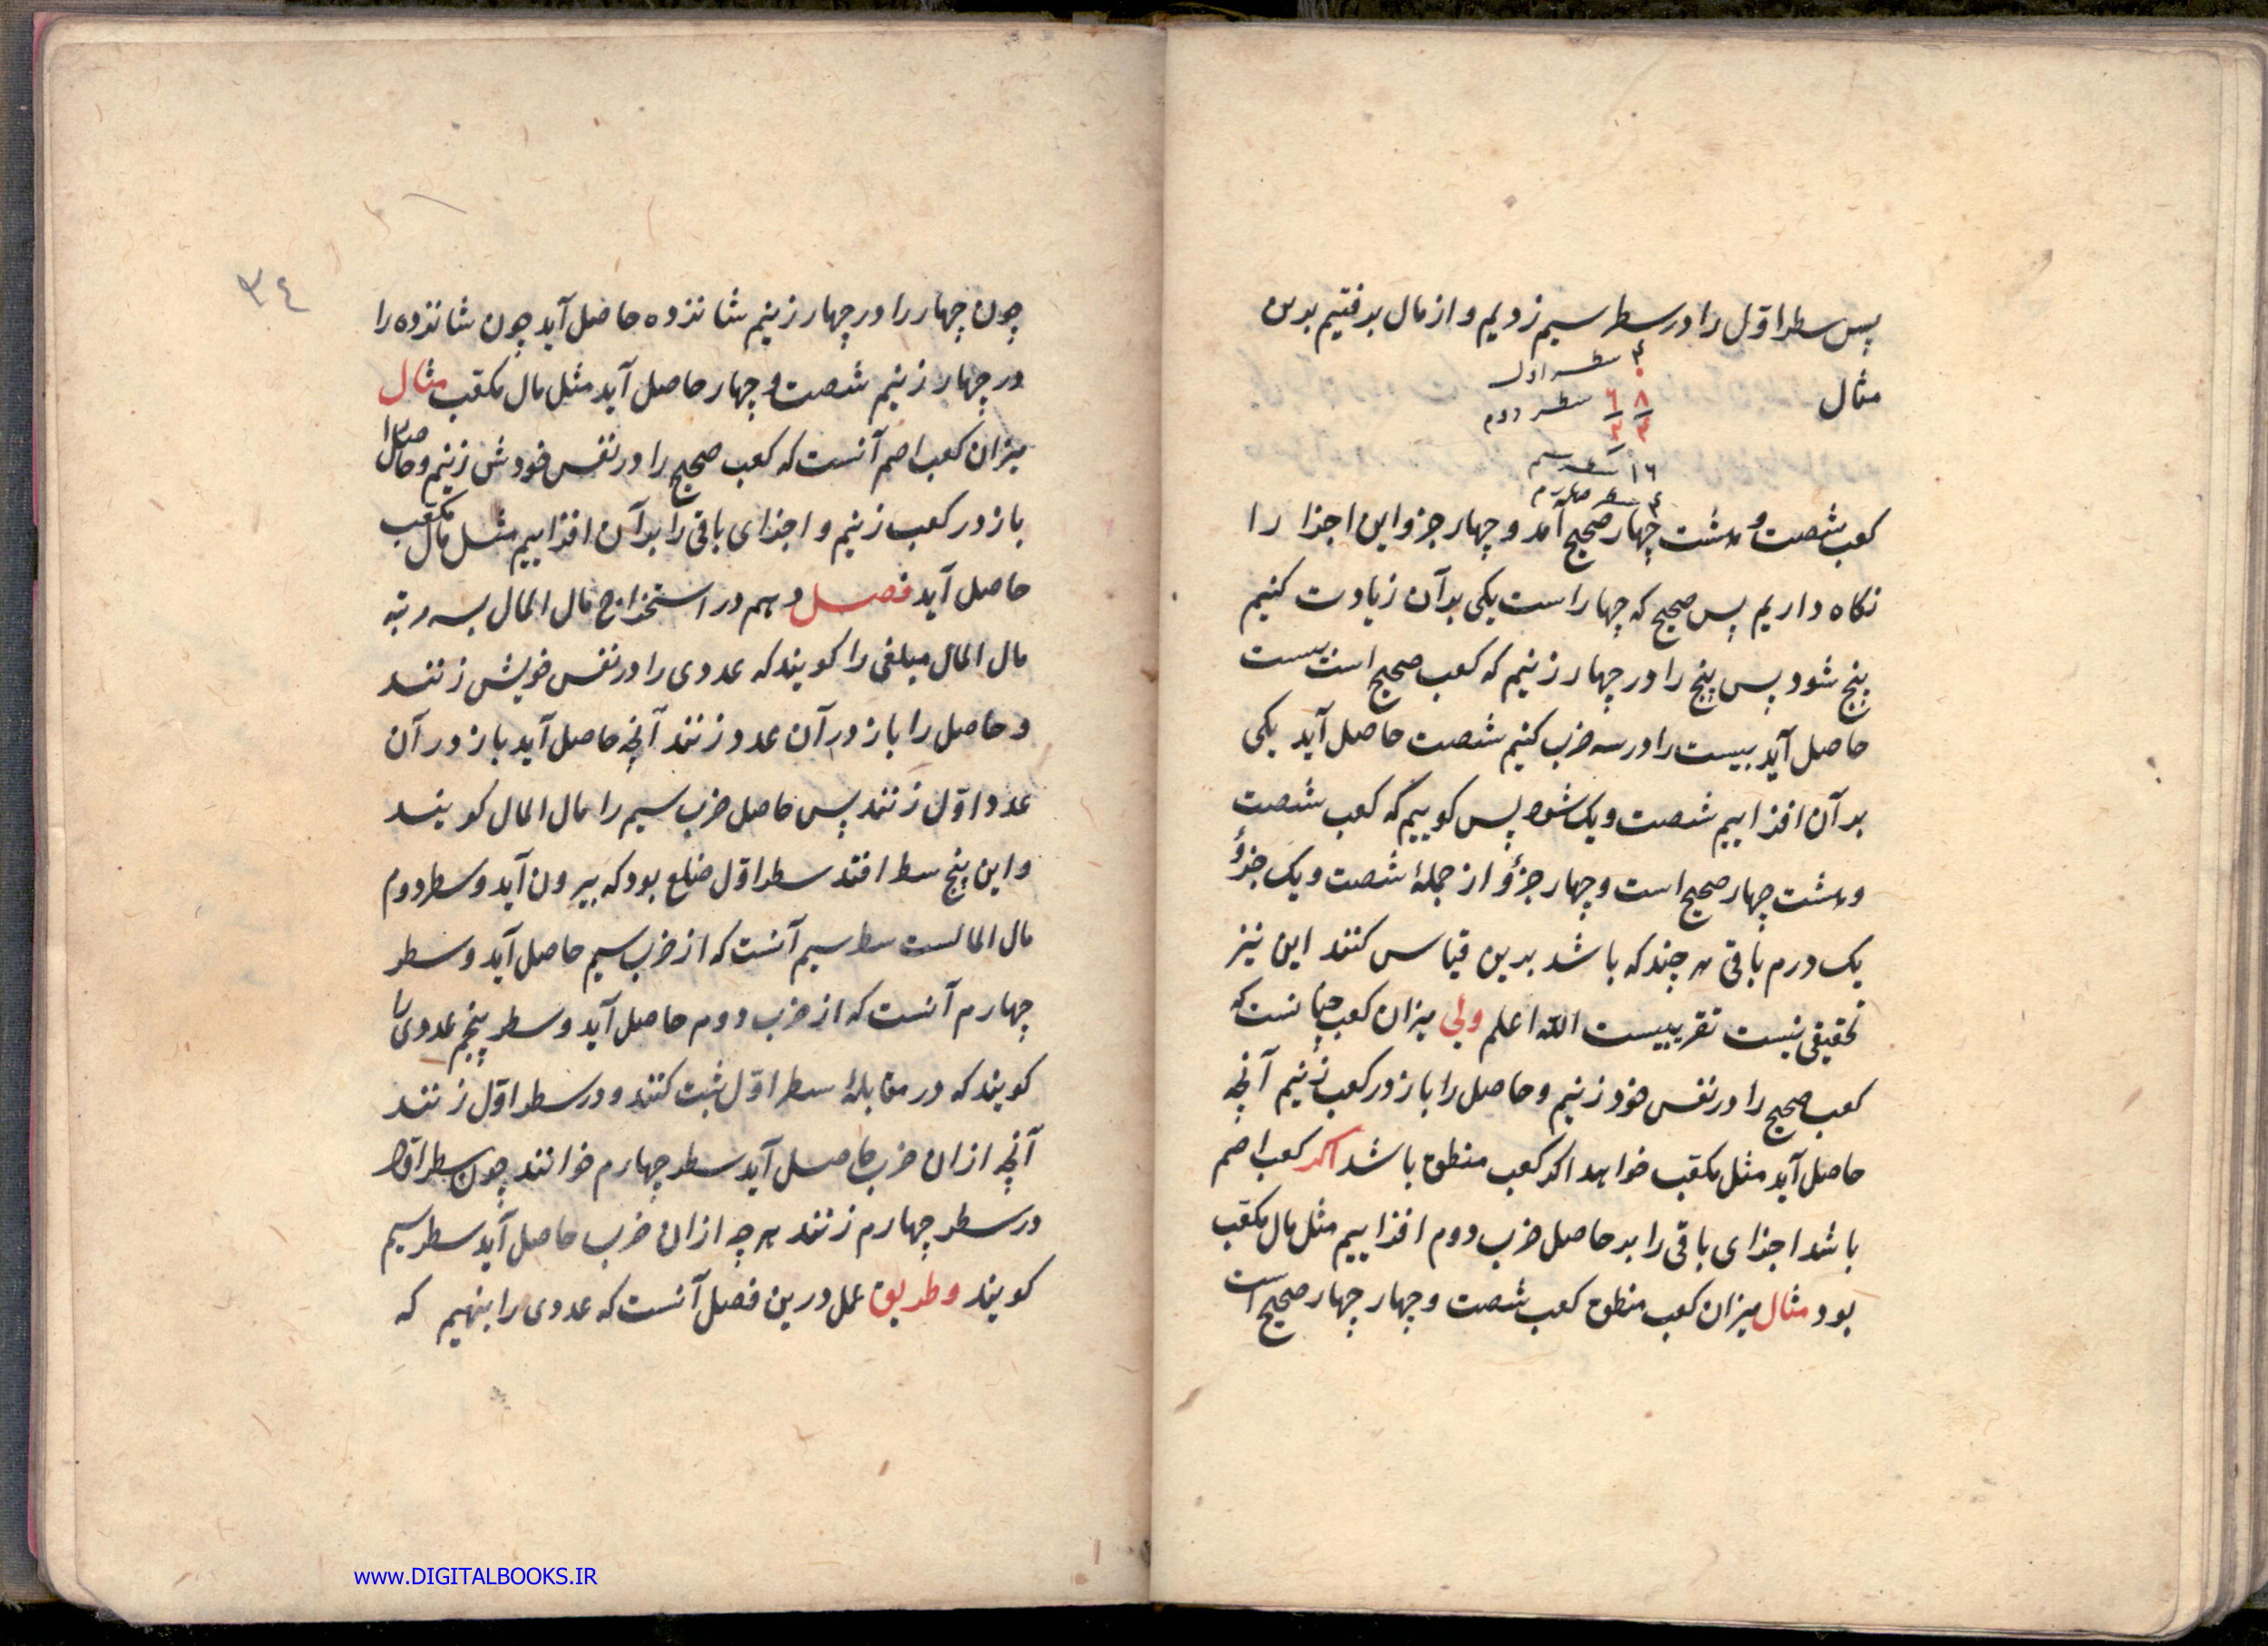 پس سطر اوّل را در سطر سیم زدیم و از مال برفتیم بدین
مثال
۴ سطر اول
۸ ٦ سطر دوم
۴ ۴
۱٦ سطر سیم
۴ سطر چهارم
کعب شصت و هشت چهار صحیح آمد و چهار جز و این اجزا را
نکاه داریم پس صحیح که چهار است یکی بدآن زیادت کنیم
پنج شود پس پنج را در چهار زنیم که کعب صحیح است بیست
حاصل آید بیست را در سه ضرب کنیم شصت حاصل آید یکی
بدآن افزاییم شصت و یک شود پس کوییم که کعب شصت
و هشت چهار صحیح است و چهار جزؤ از جملهٔ شصت و یک جزؤ
یک درم باقی هر چند که باشد بدین قیاس کنند این نیز
تحقیقی نیست تقریبیست الله اعلم ولی میزان کعب چنانست که
کعب صحیح را در نفس خود زنیم و حاصل را باز در کعب زنیم آنچه
حاصل آید مثل مکعب خواهد اکر کعب منطق باشد اکر کعب اصم
باشد اجزای باقی را بر حاصل ضرب دوم افزاییم مثل مال مکعب
بود مثال میزان کعب منطق کعب شصت و چهار چهار صحیح است
۳٤
چون چهار را در چهار زنیم شانزده حاصل آید چون شانزده را
در چهار زنیم شصت و چهار حاصل آید مثل مال مکعب مثال
میزان کعب اصم آنست که کعب صحیح را در نفس خودش زنیم و حاصل را
باز در کعب زنیم و اجزای باقی را بدآن افزاییم مثل مال مکعب
حاصل آید فصل دهم در استخراج مال المال بسه رتبه
مال المال مبلغی را کویند که عددی را در نفس خویش زنند
و حاصل را باز در آن عدد زنند آنچه حاصل آید باز در آن
عدد اوّل زنند پس حاصل ضرب سیم را مال المال کویند
و این پنج سطر افتد سطر اوّل ضلع بود که بیرون آید و سطر دوم
مال المالست سطر سیم آنست که از ضرب سیم حاصل آید و سطر
چهارم آنست که از ضرب دوم حاصل آید و سطر پنجم عددی را
کویند که در مقابلهٔ سطر اوّل ثبت کنند و در سطر اوّل زنند
آنچه ازان ضرب حاصل آید سطر چهارم خوانند چون سطر اوّل را
در سطر چهارم زنند هر چه ازان ضرب حاصل آید سطر سیم
کویند و طریق عمل درین فصل آنست که عددی را بنهیم که
www.DIGITALBOOKS.IR